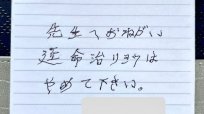 先生へおねがい
延命治りョウは
やめて下さい。